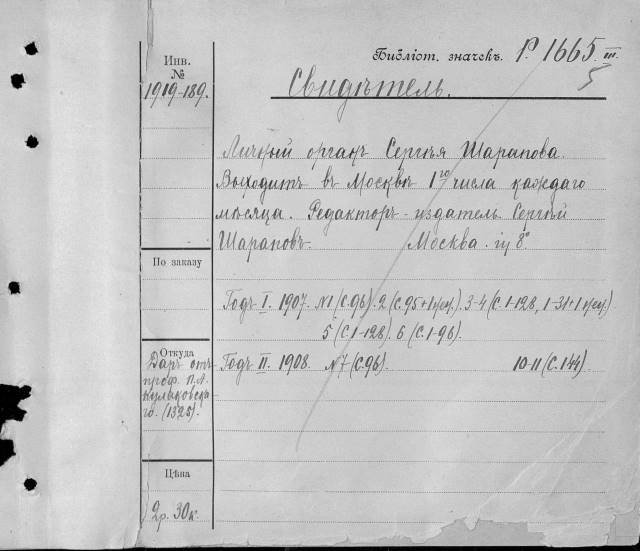 Библіот. значекъ. Р. 1665 III.
5
Инв.
№
1919-189.
Свидѣтель.
Личный органъ Сергѣя Шарапова.
Выходитъ въ Москвѣ 1го числа каждаго
мѣсяца. Редакторъ-издатель Сергѣй
Шараповъ. Москва. in 8º
По заказу
Годъ I. 1907. №1 (С. 96). 2 (С. 95+1 нен.). 3-4 (С. 1-128, 1-31+1 нен.)
5 (С. 1-128). 6 (С. 1-96).
Откуда
Даръ отъ
проф. П. А.
Кулаковска
го. (1325).
Годъ II. 1908. №7 (С. 96). 10-11 (С. 144).
Цѣна
2р. 30к.